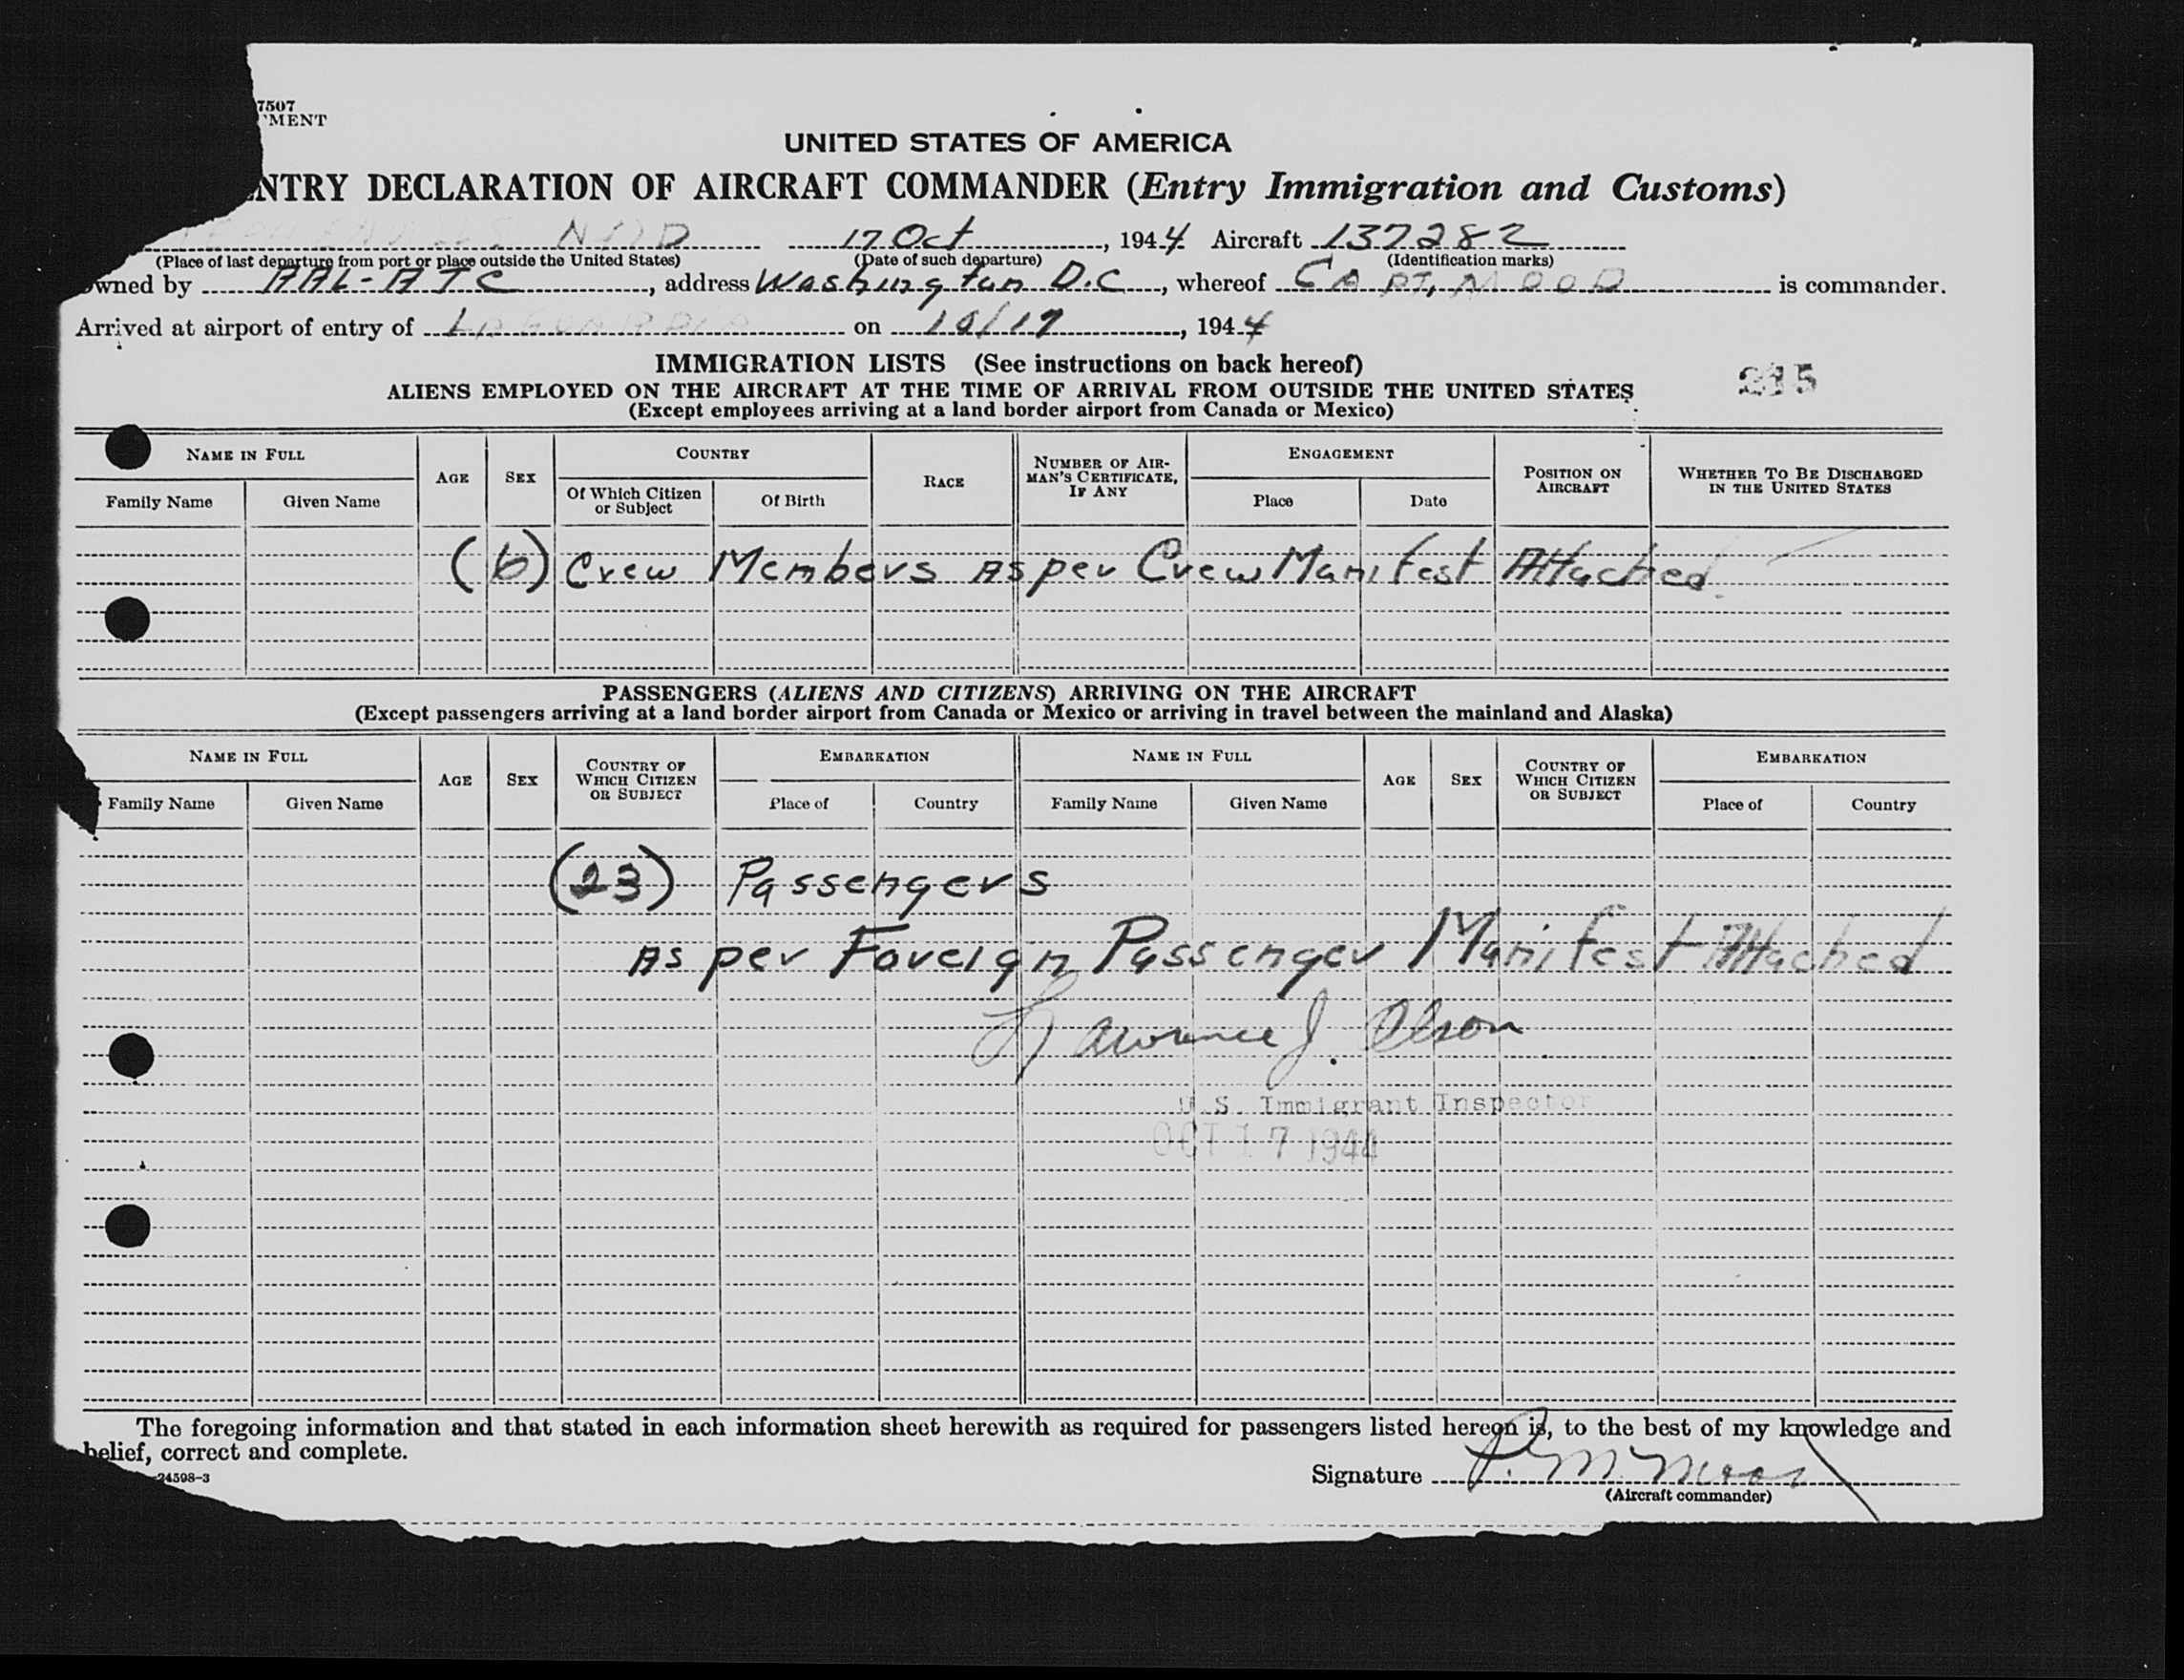 7507
MENT
UNITED STATES OF AMERICA
NTRY DECLARATION OF AIRCRAFT COMMANDER (Entry Immigration and Customs)
17 Oct, 1944 Aircraft 137282
(Place of last departure from port or place outside the United States) (Date of such departure) (Identification marks)
owned by AAL-ATC, address Washington D.C, whereof CAPT. MOOD is commander.
Arrived at airport of entry of LAGUARDIA on 10/17, 1944
IMMIGRATION LISTS (See instructions on back hereof)
ALIENS EMPLOYED ON THE AIRCRAFT AT THE TIME OF ARRIVAL FROM OUTSIDE THE UNITED STATES
(Except employees arriving at a land border airport from Canada or Mexico)
NAME IN FULL AGE SEX COUNTRY RACE NUMBER OF AIR-MAN'S CERTIFICATE, IF ANY ENGAGEMENT POSITION ON AIRCRAFT WHETHER TO BE DISCHARGED IN THE UNITED STATES
Family Name Given Name Of Which Citizen or Subject Of Birth Place Date
(6) Crew Members As per Crew Manifest Attached
PASSENGERS (ALIENS AND CITIZENS) ARRIVING ON THE AIRCRAFT
(Except passengers arriving at a land border airport from Canada or Mexico or arriving in travel between the mainland and Alaska)
NAME IN FULL AGE SEX COUNTRY OF WHICH CITIZEN OR SUBJECT EMBARKATION NAME IN FULL AGE SEX COUNTRY OF WHICH CITIZEN OR SUBJECT EMBARKATION
Family Name Given Name Place of Country Family Name Given Name Place of Country
(23) Passengers
As per Foreign Passenger Manifest Attached
Lawrence J. Olson
U.S. Immigrant Inspector
OCT 17 1944
The foregoing information and that stated in each information sheet herewith as required for passengers listed hereon is, to the best of my knowledge and
belief, correct and complete.
24598-3
Signature
(Aircraft commander)